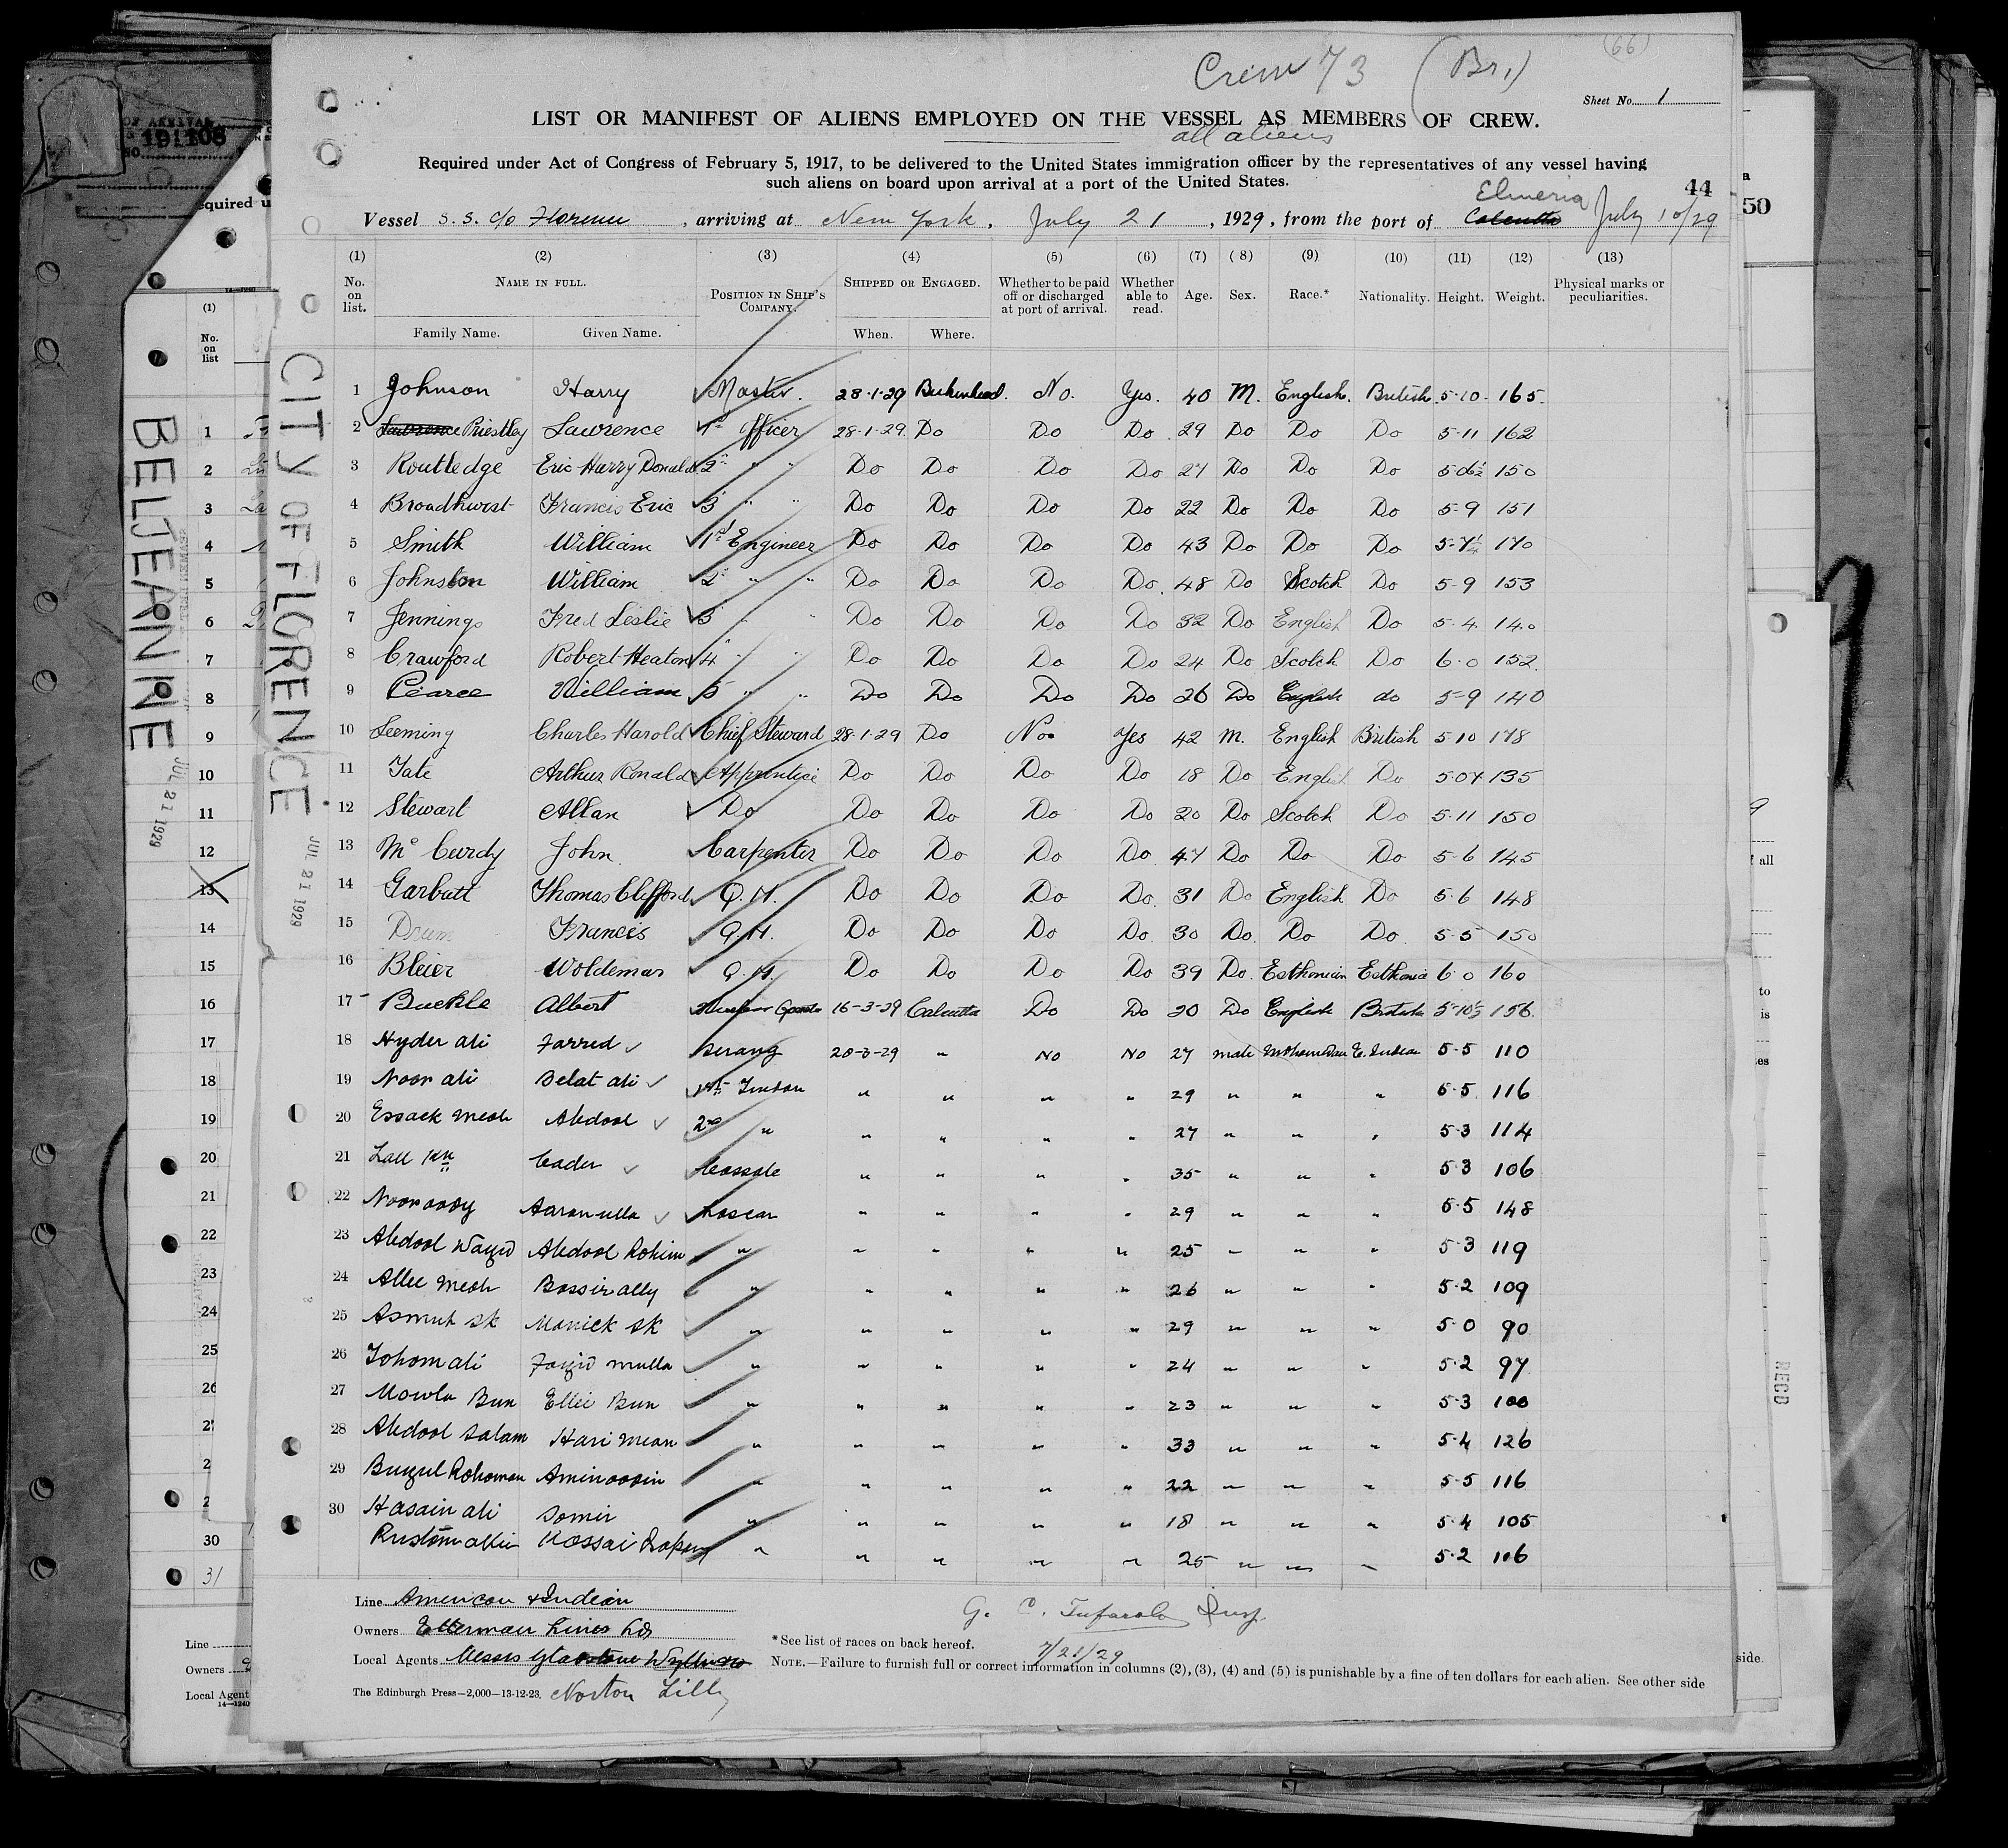 (66)
Crew 73 (Br.)
Sheet No. 1
LIST OR MANIFEST OF ALIENS EMPLOYED ON THE VESSEL AS MEMBERS OF CREW.
all aliens
Required under Act of Congress of February 5, 1917, to be delivered to the United States immigration officer by the representatives of any vessel having
such aliens on board upon arrival at a port of the United States.
44
Vessel S. S. c/o Florence, arriving at New York, July 21, 1929, from the port of Calcutta Elmeria July 10/29
(1) (2) (3) (4) (5) (6) (7) (8) (9) (10) (11) (12) (13)
No. on list. NAME IN FULL. POSITION IN SHIP'S COMPANY. SHIPPED OR ENGAGED. Whether to be paid off or discharged at port of arrival. Whether able to read. Age. Sex. Race.* Nationality. Height. Weight. Physical marks or peculiarities.
Family Name. Given Name. When. Where.
1 Johnson Harry Master. 28-1-29 Birkenhead. No. Yes. 40 M. English. British. 5-10 165.
2 Lawrence Priestley Lawrence 1st Officer 28-1-29 Do Do Do 29 Do Do Do 5-11 162
3 Routledge Eric Harry Donald 2nd " " Do Do Do Do 27 Do Do Do 5-6½ 150
4 Broadhurst Francis Eric 3 " " Do Do Do Do 22 Do Do Do 5-9 151
5 Smith William 1st Engineer Do Do Do Do 43 Do Do Do 5-7¼ 170
6 Johnston William 2nd " " Do Do Do Do. 48 Do Scotch Do 5-9 153
7 Jennings Fred Leslie 3 " " Do Do Do Do 32 Do English Do 5-4 140
8 Crawford Robert Heaton 4 " " Do Do Do Do 24 Do Scotch Do 6-0 152.
9 Pearce William 5 " " Do Do Do Do 26 Do English do 5-9 140
10 Leeming Charles Harold Chief Steward 28-1-29 Do No Yes 42 M. English British 5-10 178
11 Tate Arthur Ronald Apprentice Do Do Do Do 18 Do English Do 5-07 135
12 Stewart Allan Do Do Do Do Do 20 Do Scotch Do 5-11 150
13 Mc Curdy John Carpenter Do Do Do Do 47 Do Do Do 5-6 145
14 Garbutt Thomas Clifford Q.M. Do Do Do Do. 31 Do English Do 5-6 148
15 Drum Francis Q.M. Do Do Do Do. 30 Do. Do Do. 5-5 150
16 Bleier Woldemar Q.M. Do Do Do Do 39 Do. Esthonian Esthonia 6-0 160
17 Buckle Albert 16-3-29 Calcutta Do Do 20 Do English British 5-10½ 156.
18 Hyder Ali Farred Serang 20-3-29 " No No 27 male Mohomedan E. Indian 5-5 110
19 Noor Ali Belat Ali 1st Tindal " " " " 29 " " " 5-5 116
20 Essack Meah Abdool 2nd " " " " " 27 " " " 5-3 114
21 Lall Cader Cassab " " " " 35 " " " 5-3 106
22 Noorooddy Aaronulla Lascar " " " " 29 " " " 5-5 148
23 Abdool Wazid Abdool Rohim " " " " " 25 " " " 5-3 119
24 Allee Meah Bassirally " " " " " 26 " " " 5-2 109
25 Asmut Sk Manick Sk " " " " " 29 " " " 5-0 90
26 Tohom Ali Fazid Mulla " " " " " 24 " " " 5-2 97
27 Mowla Bux Ellie Bux " " " " " 23 " " " 5-3 100
28 Abdool Salam Hari Mean " " " " " 33 " " " 5-4 126
29 Buzul Rohoman Aminoodin " " " " " 22 " " " 5-5 116
30 Hasain Ali Somir " " " " " 18 " " " 5-4 105
Rustom Allie Kassai " " " " " 25 " " " 5-2 106
Line American & Indian
Owners Ellerman Lines Ld
Local Agents Messrs Gladstone Wyllie & Co
Norton Lilly
G. C. Tufarolo Insp.
7/21/29
*See list of races on back hereof.
NOTE.—Failure to furnish full or correct information in columns (2), (3), (4) and (5) is punishable by a fine of ten dollars for each alien. See other side
The Edinburgh Press—2,000—13-12-23.
CITY OF FLORENCE
JUL 21 1929
BELJEANNE
JUL 21 1929
OF ARRIVAL
191108
equired u
(1)
No. on list
1
2
3
4
5
6
7
8
9
10
11
12
13
14
15
16
17
18
19
20
21
22
23
24
25
26
30
31
Line
Owners
Local Agent
14—1240
50
all
to
is
side.
RECD